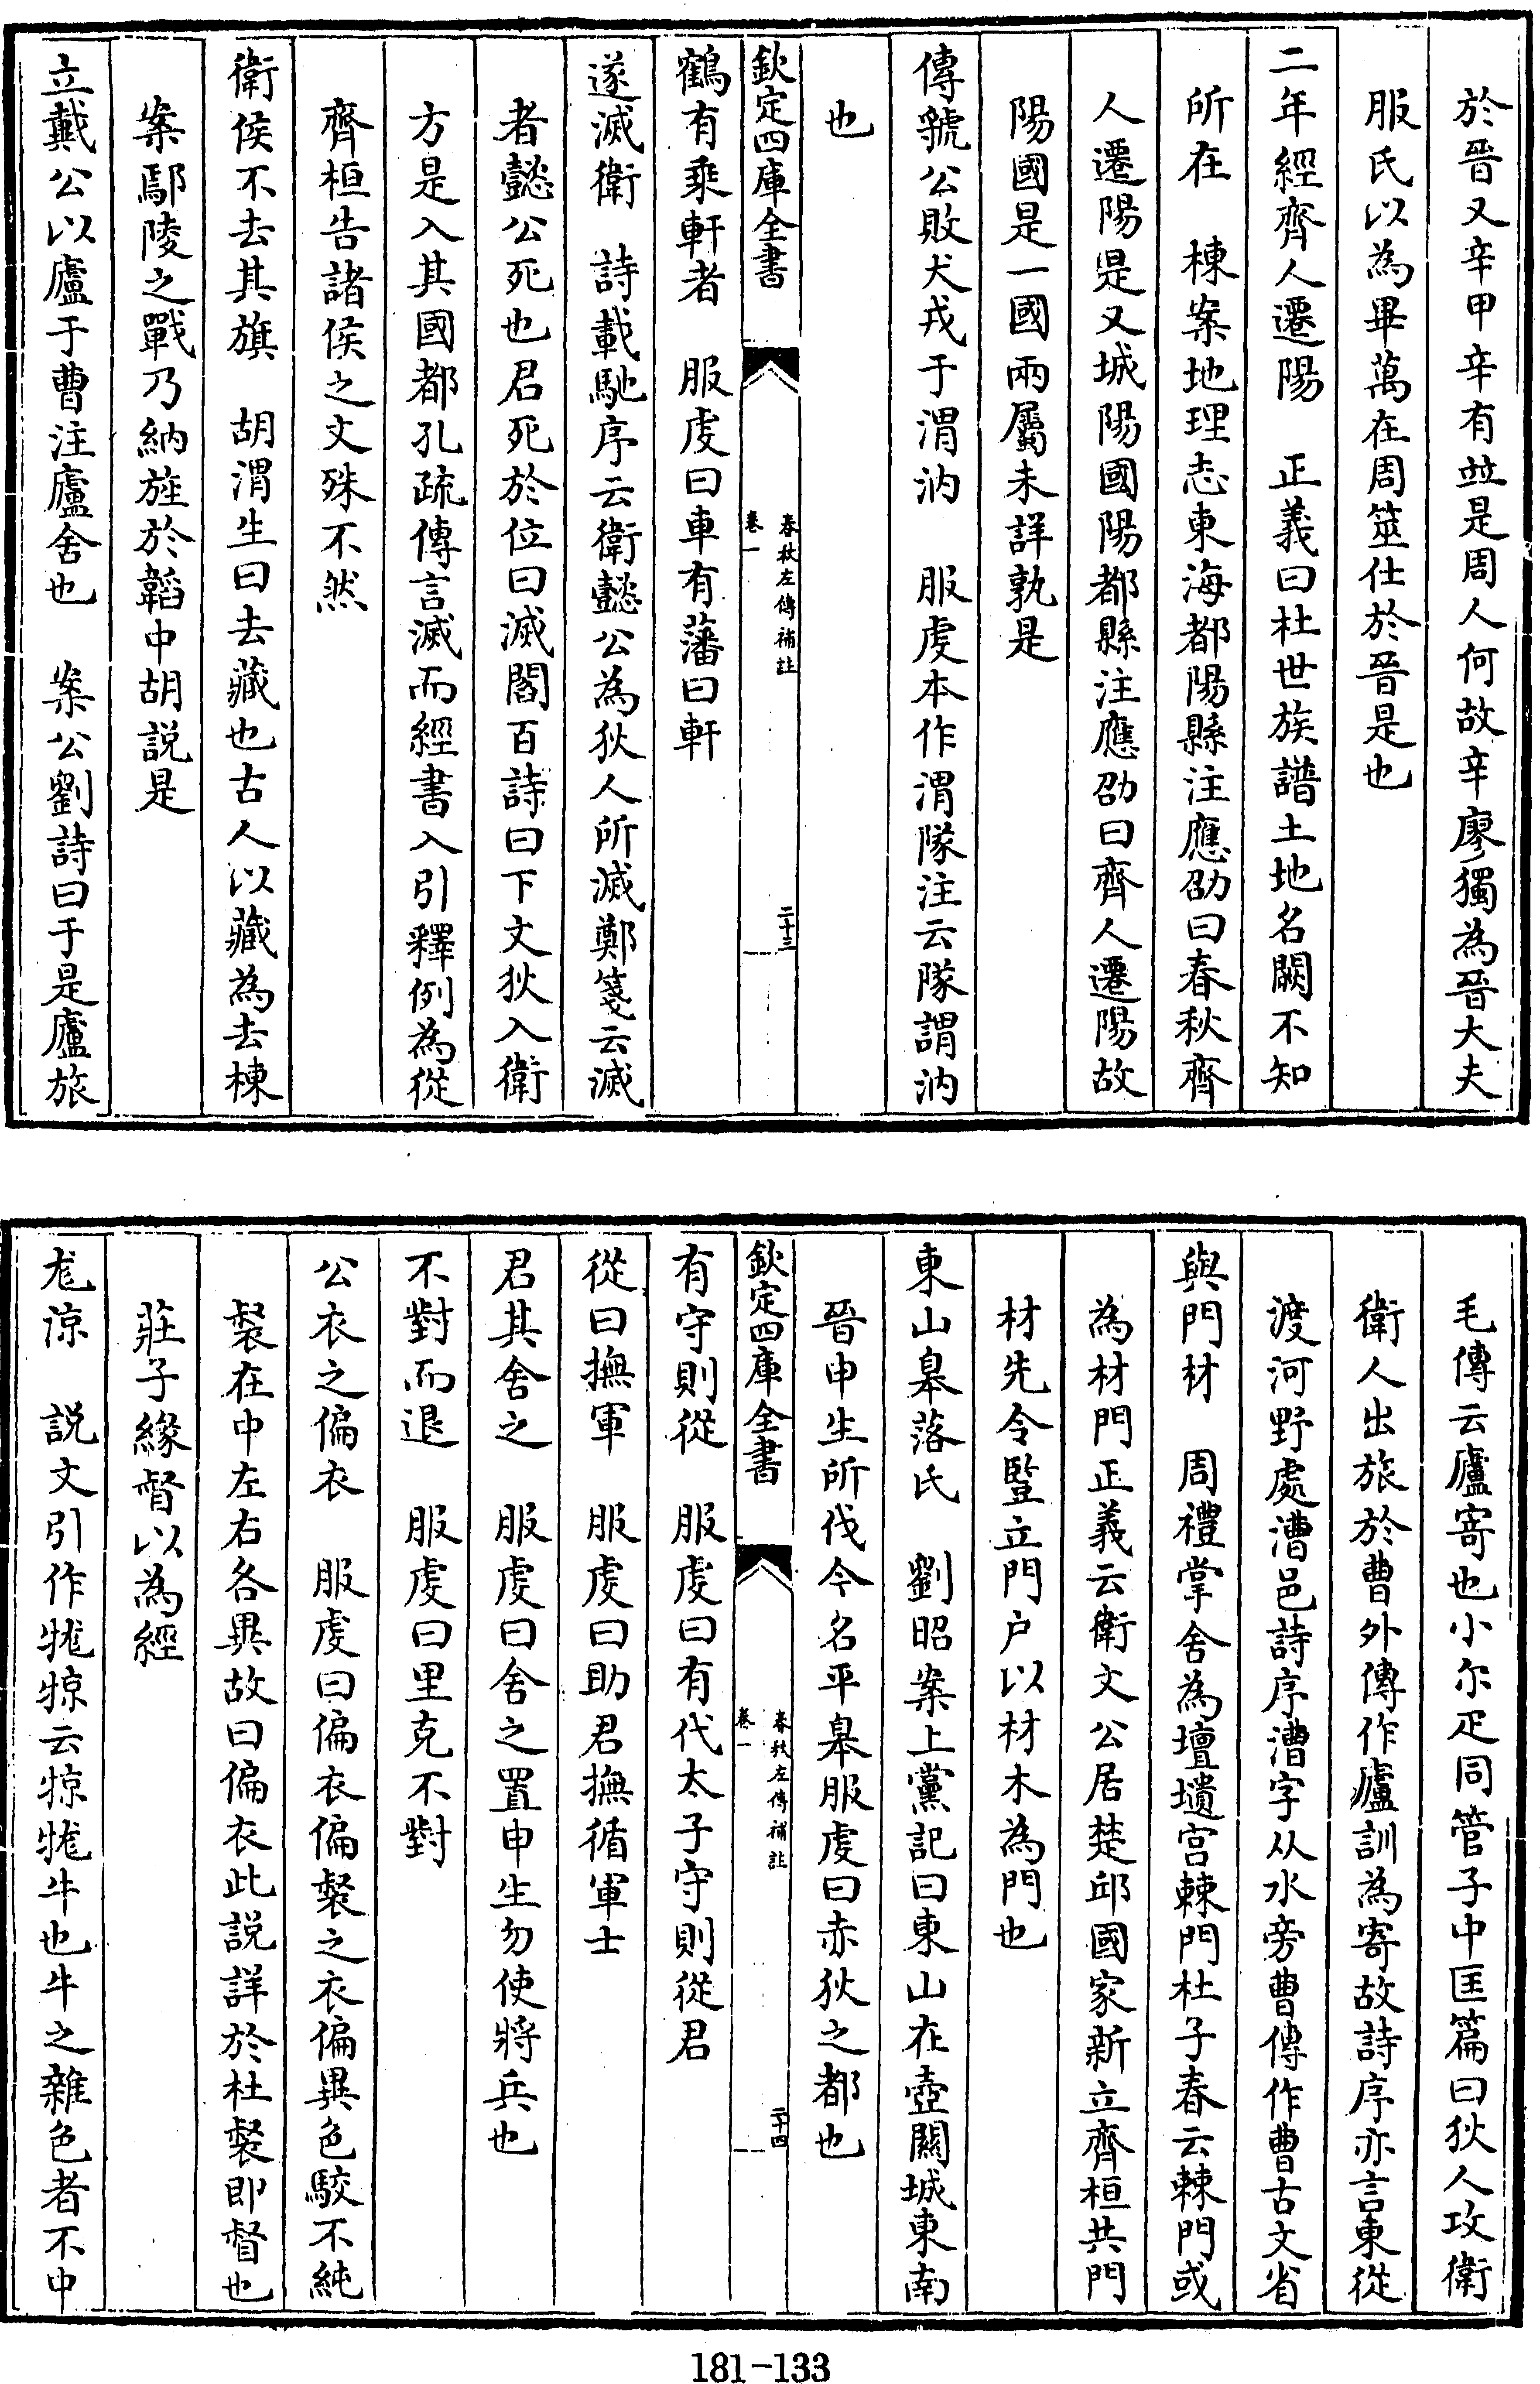 於晉又辛甲辛有竝是周人何故辛廖獨為晉大夫
服氏以為畢萬在周筮仕於晉是也
二年經齊人遷陽　正義曰杜世族譜土地名闕不知
所在　棟案地理志東海都陽縣注應劭曰春秋齊
人遷陽是又城陽國陽都縣注應劭曰齊人遷陽故
陽國是一國兩屬未詳孰是
傳虢公敗犬戎于渭汭　服虔本作渭隊注云隊謂汭
也
欽定四庫全書
春秋左傳補註
卷一
二十三
鶴有乘軒者　服虔曰車有藩曰軒
遂滅衛　詩載馳序云衛懿公為狄人所滅鄭箋云滅
者懿公死也君死於位曰滅閻百詩曰下文狄入衛
方是入其國都孔疏傳言滅而經書入引釋例為從
齊桓告諸侯之文殊不然
衛侯不去其旗　胡渭生曰去藏也古人以藏為去棟
案鄢陵之戰乃納旌於韜中胡説是
立戴公以廬于曹注廬舍也　案公劉詩曰于是廬旅
毛傳云廬寄也小尔疋同管子中匡篇曰狄人攻衛
衛人出旅於曹外傳作廬訓為寄故詩序亦言東從
渡河野處漕邑詩序漕字从水旁曹傳作曹古文省
與門材　周禮掌舍為壇壝宫棘門杜子春云棘門或
為材門正義云衛文公居楚邱國家新立齊桓共門
材先令豎立門户以材木為門也
東山皋落氏　劉昭案上黨記曰東山在壺關城東南
晉申生所伐今名平皋服虔曰赤狄之都也
欽定四庫全書
春秋左傳補註
卷一
二十四
有守則從　服虔曰有代太子守則從君
從曰撫軍　服虔曰助君撫循軍士
君其舍之　服虔曰舍之置申生勿使將兵也
不對而退　服虔曰里克不對
公衣之偏衣　服虔曰偏衣偏裻之衣偏異色駮不純
裻在中左右各異故曰偏衣此説詳於杜裻即督也
莊子緣督以為經
尨涼　説文引作㹙㹁云㹁㹙牛也牛之雜色者不中
181-133